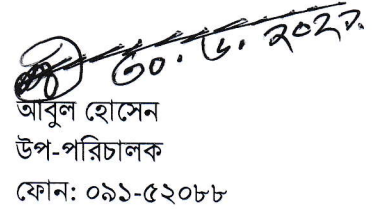 ৩০.৬.২০২১
আবুল হোসেন
উপ-পরিচালক
ফোন: ০৯১-৫২০৮৮